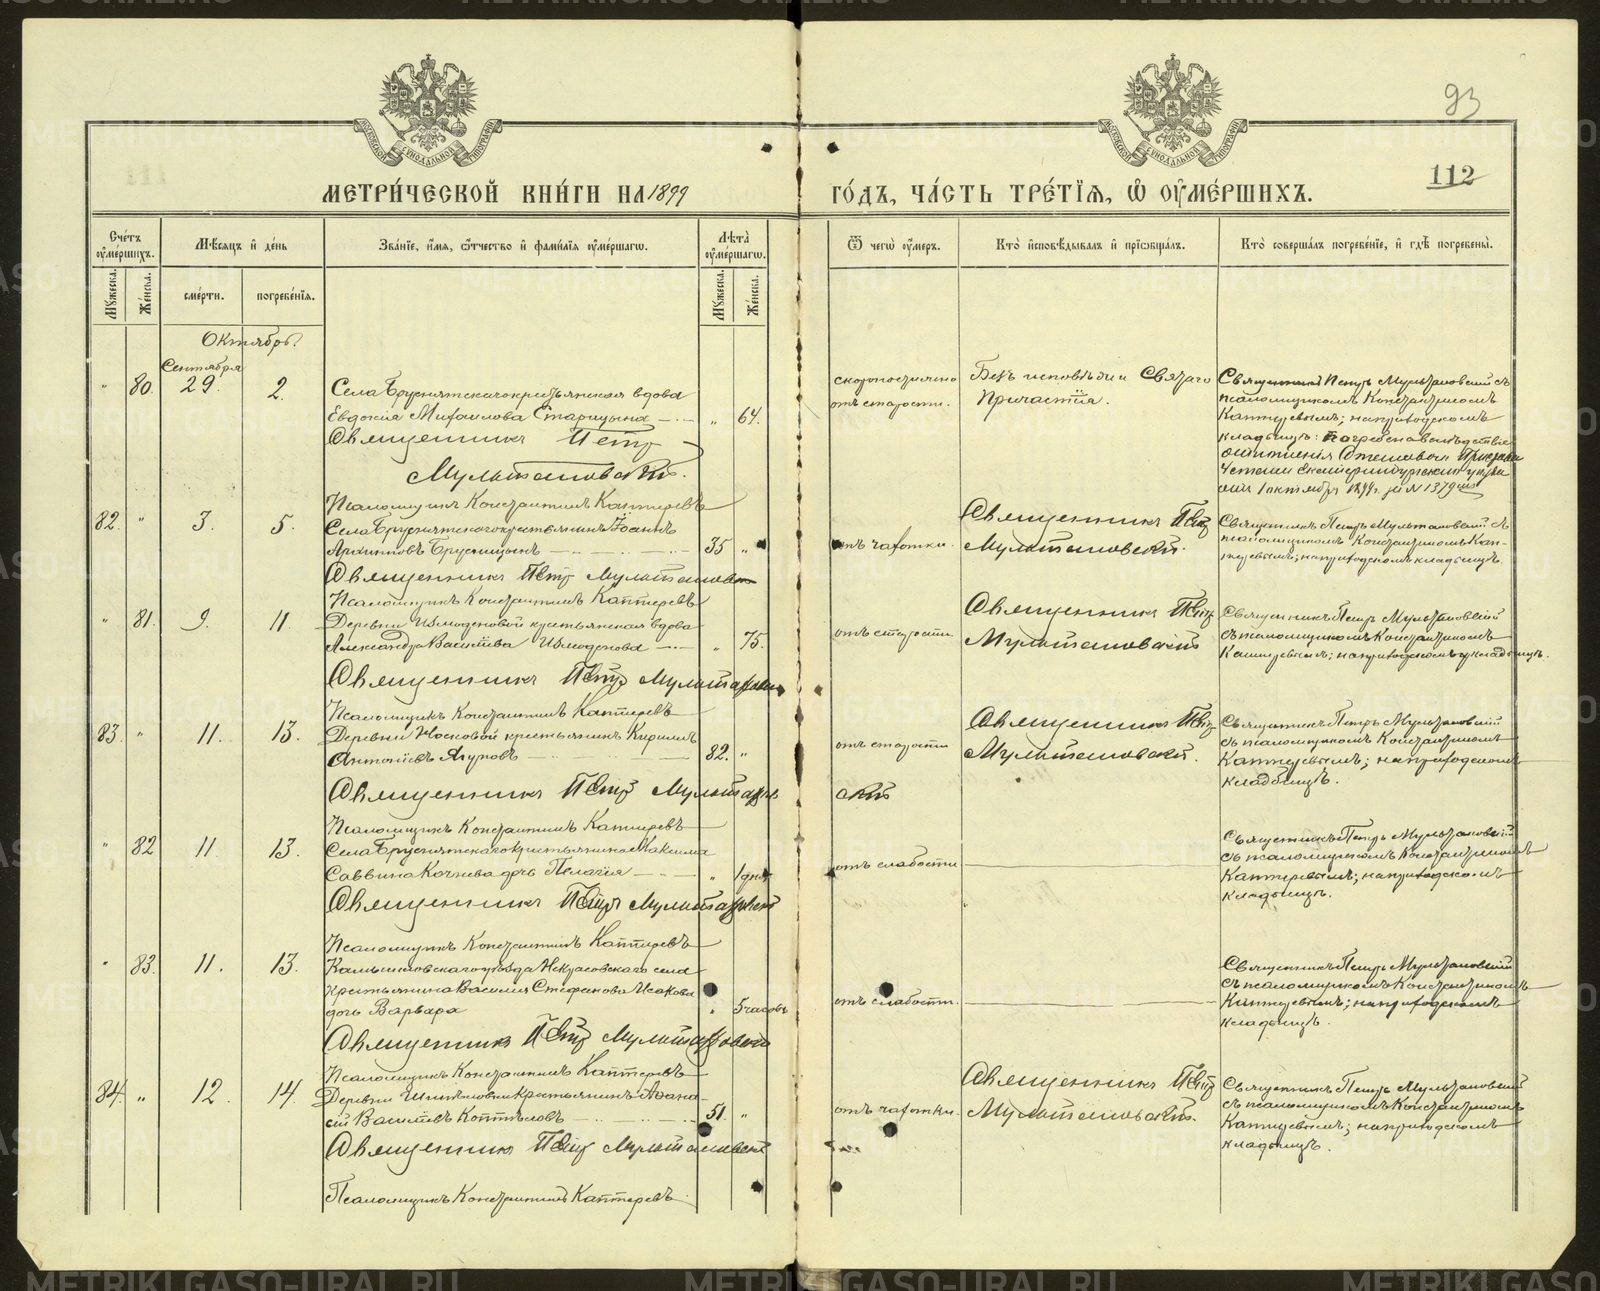 93
112
МЕТРИ́ЧЕСКОЙ КНИ́ГИ НА 1899
ГО́ДЪ, ЧА́СТЬ ТРЕ́ТІѦ, Ѡ҆ ОУ҆МЕ́РШИХЪ.
Сче́тъ оу҆ме́ршихъ.
Мѣ́сѧцъ и҆ де́нь
Зва́нїе, и҆́мѧ, ѻ҆́тчество и҆ фами́лїѧ оу҆ме́ршагѡ.
Лѣ́та оу҆ме́ршагѡ.
Ѿ чегѡ̀ оу҆́меръ.
Кто̀ и҆сповѣ́дывалъ и҆ прїѡбща́лъ.
Кто̀ соверша́лъ погребе́нїе, и҆ гдѣ̀ погребены̀.
Мꙋ́жеска.
Же́нска.
сме́рти.
погребе́нїѧ.
Мꙋ́жеска.
Же́нска.
Октябрь.
Сентября
" 80. 29. 2.
Села Бруснятскаго крестьянская вдова
Евдокія Михаилова Старицына " 64.
Священникъ Петръ
Мультановскій.
Псаломщикъ Константинъ Каптеревъ
скоропостижно
отъ старости.
Безъ исповѣди и Святаго
Причастія.
Священникъ Петръ Мультановскій съ
псаломщикомъ Константиномъ
Каптеревымъ; на приходскомъ
кладбищѣ.
82. " 3. 5.
Села Бруснятскаго крестьянинъ Іоаннъ
Архиповъ Брусницынъ 35 "
Священникъ Петръ Мультановскій
Псаломщикъ Константинъ Каптеревъ
отъ чахотки.
Священникъ Петръ
Мультановскій.
Священникъ Петръ Мультановскій съ
псаломщикомъ Константиномъ Кап-
теревымъ; на приходскомъ кладбищѣ.
" 81. 9. 11.
Деревни Измоденовой крестьянская вдова
Александра Васильева Измоденова " 75.
Священникъ Петръ Мультановскій
Псаломщикъ Константинъ Каптеревъ
отъ старости
Священникъ Петръ
Мультановскій
Священникъ Петръ Мультановскій
съ псаломщикомъ Константиномъ
Каптеревымъ; на приходскомъ кладбищѣ.
83. " 11. 13.
Деревни Носковой крестьянинъ Кириллъ
Антоніевъ Ягуповъ 82. "
Священникъ Петръ Мультановскій
Псаломщикъ Константинъ Каптеревъ
отъ старости
Священникъ Петръ
Мультановскій.
Священникъ Петръ Мультановскій
съ псаломщикомъ Константиномъ
Каптеревымъ; на приходскомъ
кладбищѣ.
" 82 11 13.
Села Бруснятскаго крестьянина Максима
Саввина Кочнева дочь Пелагія " 1 дня
Священникъ Петръ Мультановскій
Псаломщикъ Константинъ Каптеревъ
отъ слабости
Священникъ Петръ Мультановскій
съ псаломщикомъ Константиномъ
Каптеревымъ; на приходскомъ
кладбищѣ.
" 83. 11. 13.
Камышловскаго уѣзда Некрасовскаго села
крестьянина Василія Стефанова Исакова
дочь Варвара " 5 часовъ
Священникъ Петръ Мультановскій
Псаломщикъ Константинъ Каптеревъ
отъ слабости.
Священникъ Петръ Мультановскій
съ псаломщикомъ Константиномъ
Каптеревымъ; на приходскомъ
кладбищѣ.
84. " 12. 14.
Деревни крестьянинъ Афана-
сій Васильевъ 51. "
Священникъ Петръ Мультановскій
Псаломщикъ Константинъ Каптеревъ.
отъ чахотки.
Священникъ Петръ
Мультановскій.
Священникъ Петръ Мультановскій
съ псаломщикомъ Константиномъ
Каптеревымъ; на приходскомъ
кладбищѣ.
METRIKI.GASO-URAL.RU